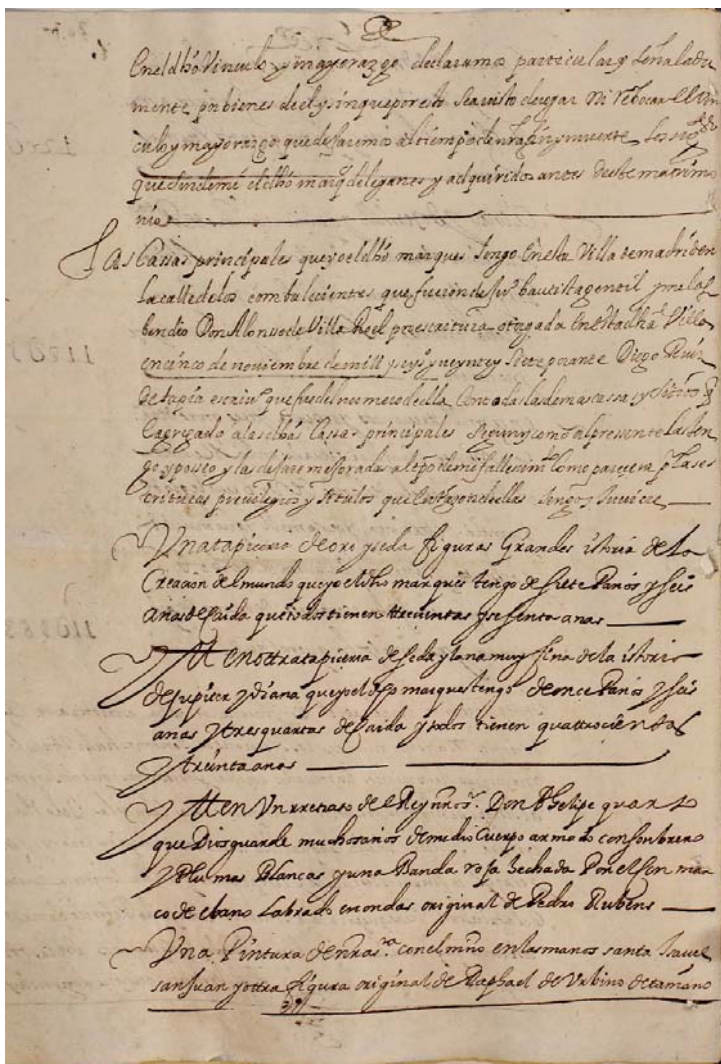 En el dho Vinculo y mayorazgo declaramos particular y señalada
mente por bienes del y sin que por esto sea visto derogar ni rebocar el Vin
culo y mayorazgo que dejaremos al tiempo de nra fin y muerte los
que a mi el dho marqs de leganes y adquiridos antes deste matrimo
nio
Las Cassas principales que yo el dho marques tengo en esta Villa de madrid en
la calle de los combalecientes que fueron de Juº bautista gentil y me las
bendio Don Alonso de Villa Real por escritura otorgada en esta dha Villa
en cinco de noviembre de mill y seysº y veynte y siete por ante Diego Ruiz
de tapia escrivº que fue del numero de ella Con todas las demas cassas y sitios q
e agregado a las dhas Cassas principales segun y como al presente las ten
go y posseo y las dejare mejoradas al tpo de mi fallecimtº Como parecera pr las es
crituras previlegios y titulos que en raçon de ellas tengo y tuviere
Una tapiceria de oro y seda figuras Grandes istoria de la
Creacion del mundo que yo el dho marques tengo de siete Paños y seis
anas de caida que todos tienen trecientas y sesenta anas
Yten otra tapiceria de seda y lana muy fina de la istoria
de Jupiter y Diana que yo el dho marques tengo de once Paños y seis
anas y tres quartas de Caida y todos tienen quattrocientas
y treinta anas
Yten Un rretrato del Rey nro sr. Don Phelipe quarto
que Dios guarde muchos años de medio Cuerpo armado con sonbrero
y Plumas Blancas y una Banda roja hechada Por el con mar
co de ebano Labrado en ondas original de Pedro Rubens
Una Pintura de nra sra con el niño en las manos santa Isavel
san Juan y otra figura original de Raphael de Urbino de tamaño